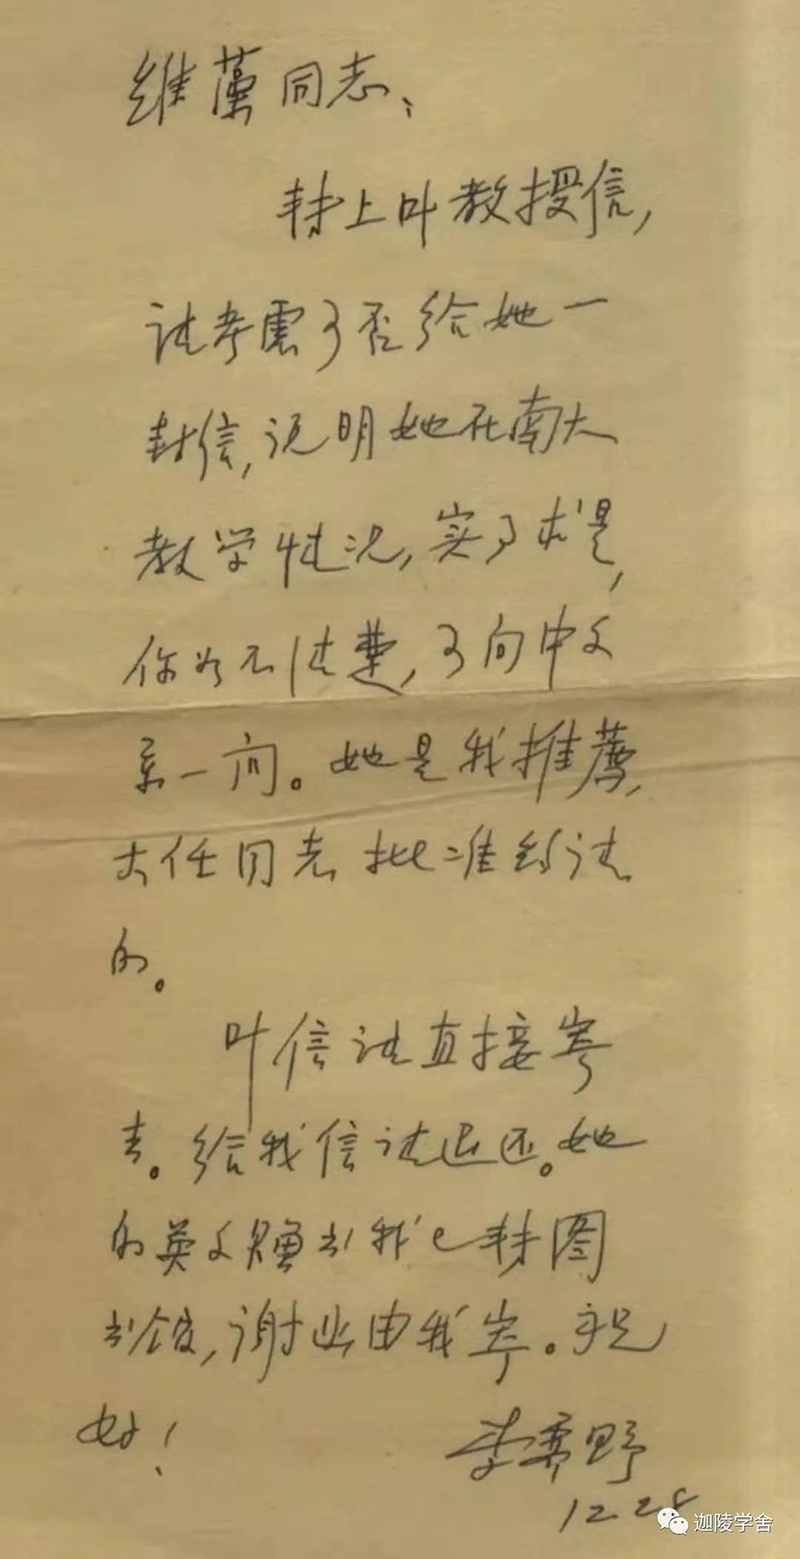 维藻同志：
转上叶教授信，
请考虑可否给她一
封信，说明她在南大
教学情况，实事求是，
你如不清楚，可向中文
系一问。她是我推荐，
大任同志批准约请
的。
叶信请直接寄
去。给我信请退还。她
的英文赠书我已转图
书馆，谢此由我寄。即祝
好！
李霁野
12.28
迦陵学舍